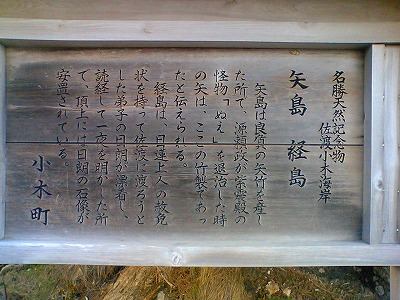 名勝天然記念物
佐渡小木海岸
矢島 経島
矢島は良質の矢竹を産し
た所で、源頼政が紫宸殿の
怪物「ぬえ」を退治した時
の矢は、ここの竹製であっ
たと伝えられる。
経島は、日蓮上人の赦免
状を持って佐渡に渡ろうと
した弟子の日朗が漂着し、
読経して一夜を明かした所
で、頂上には日朗の石像が
安置されている。
小木町